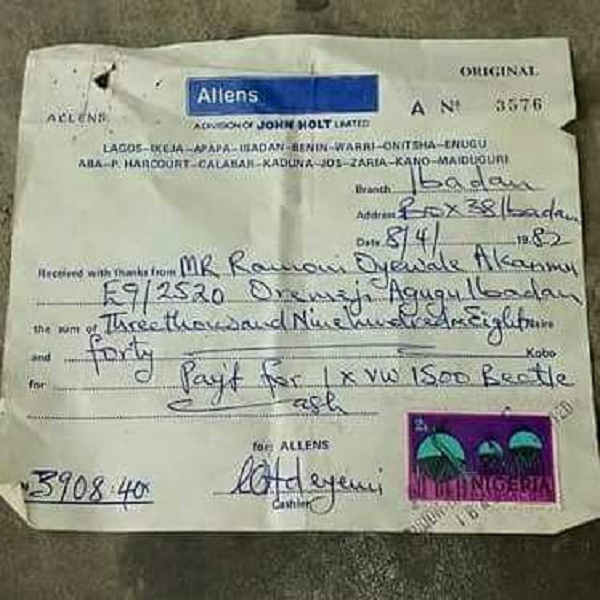 ORIGINAL
ALLENS
Allens
A Nº 3576
A DIVISION OF JOHN HOLT LIMITED
LAGOS-IKEJA-APAPA-IBADAN-BENIN-WARRI-ONITSHA-ENUGU
ABA-P. HARCOURT-CALABAR-KADUNA-JOS-ZARIA-KANO-MAIDUGURI
Branch Ibadan
Address Box 38 Ibadan
Date 8/4/ 1982
Received with thanks from MR Ramoni Oyewale Akanmu
E9/2520 Oremeji Agugu Ibadan
the sum of Three thousand Nine hundred & Eight Naira
and forty Kobo
for Payt for 1 x VW 1500 Beetle
Cash
for: ALLENS
3908:40k
Cashier
NIGERIA